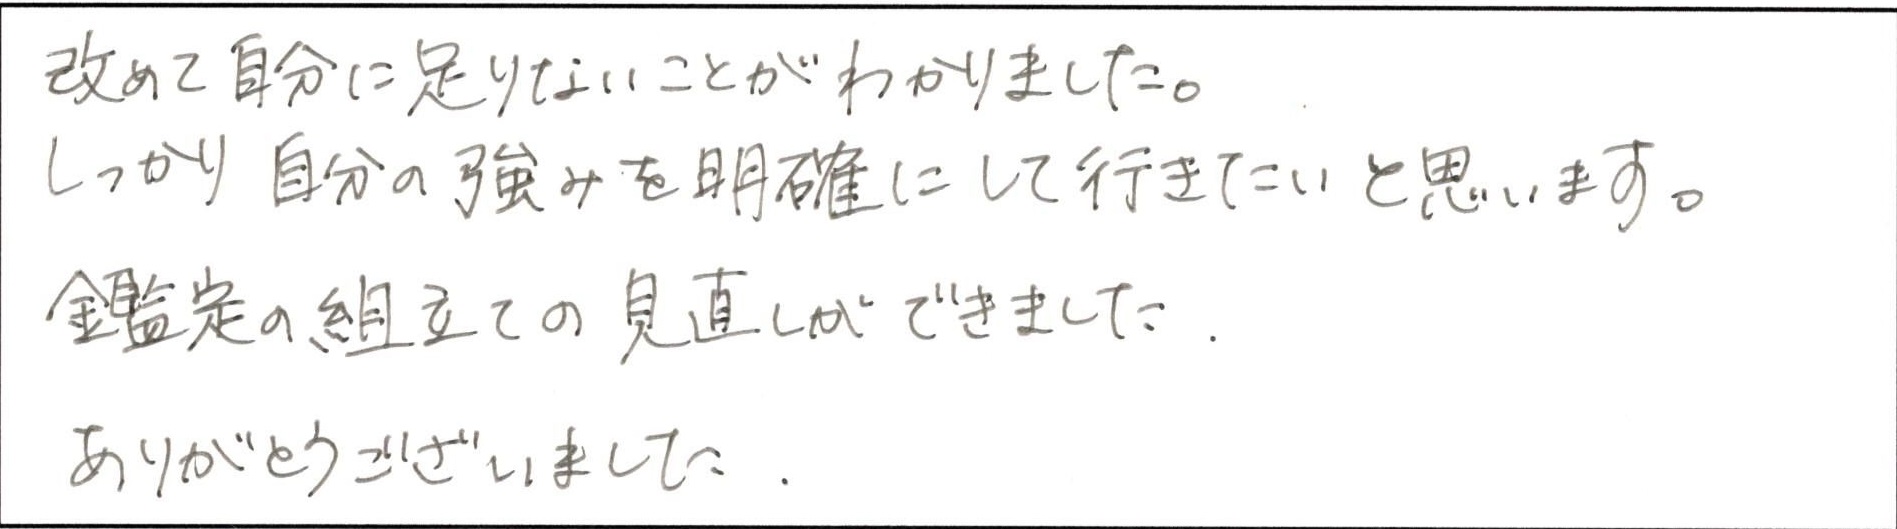 改めて自分に足りないことがわかりました。
しっかり自分の強みを明確にして行きたいと思います。
鑑定の組立ての見直しができました.
ありがとうございました.